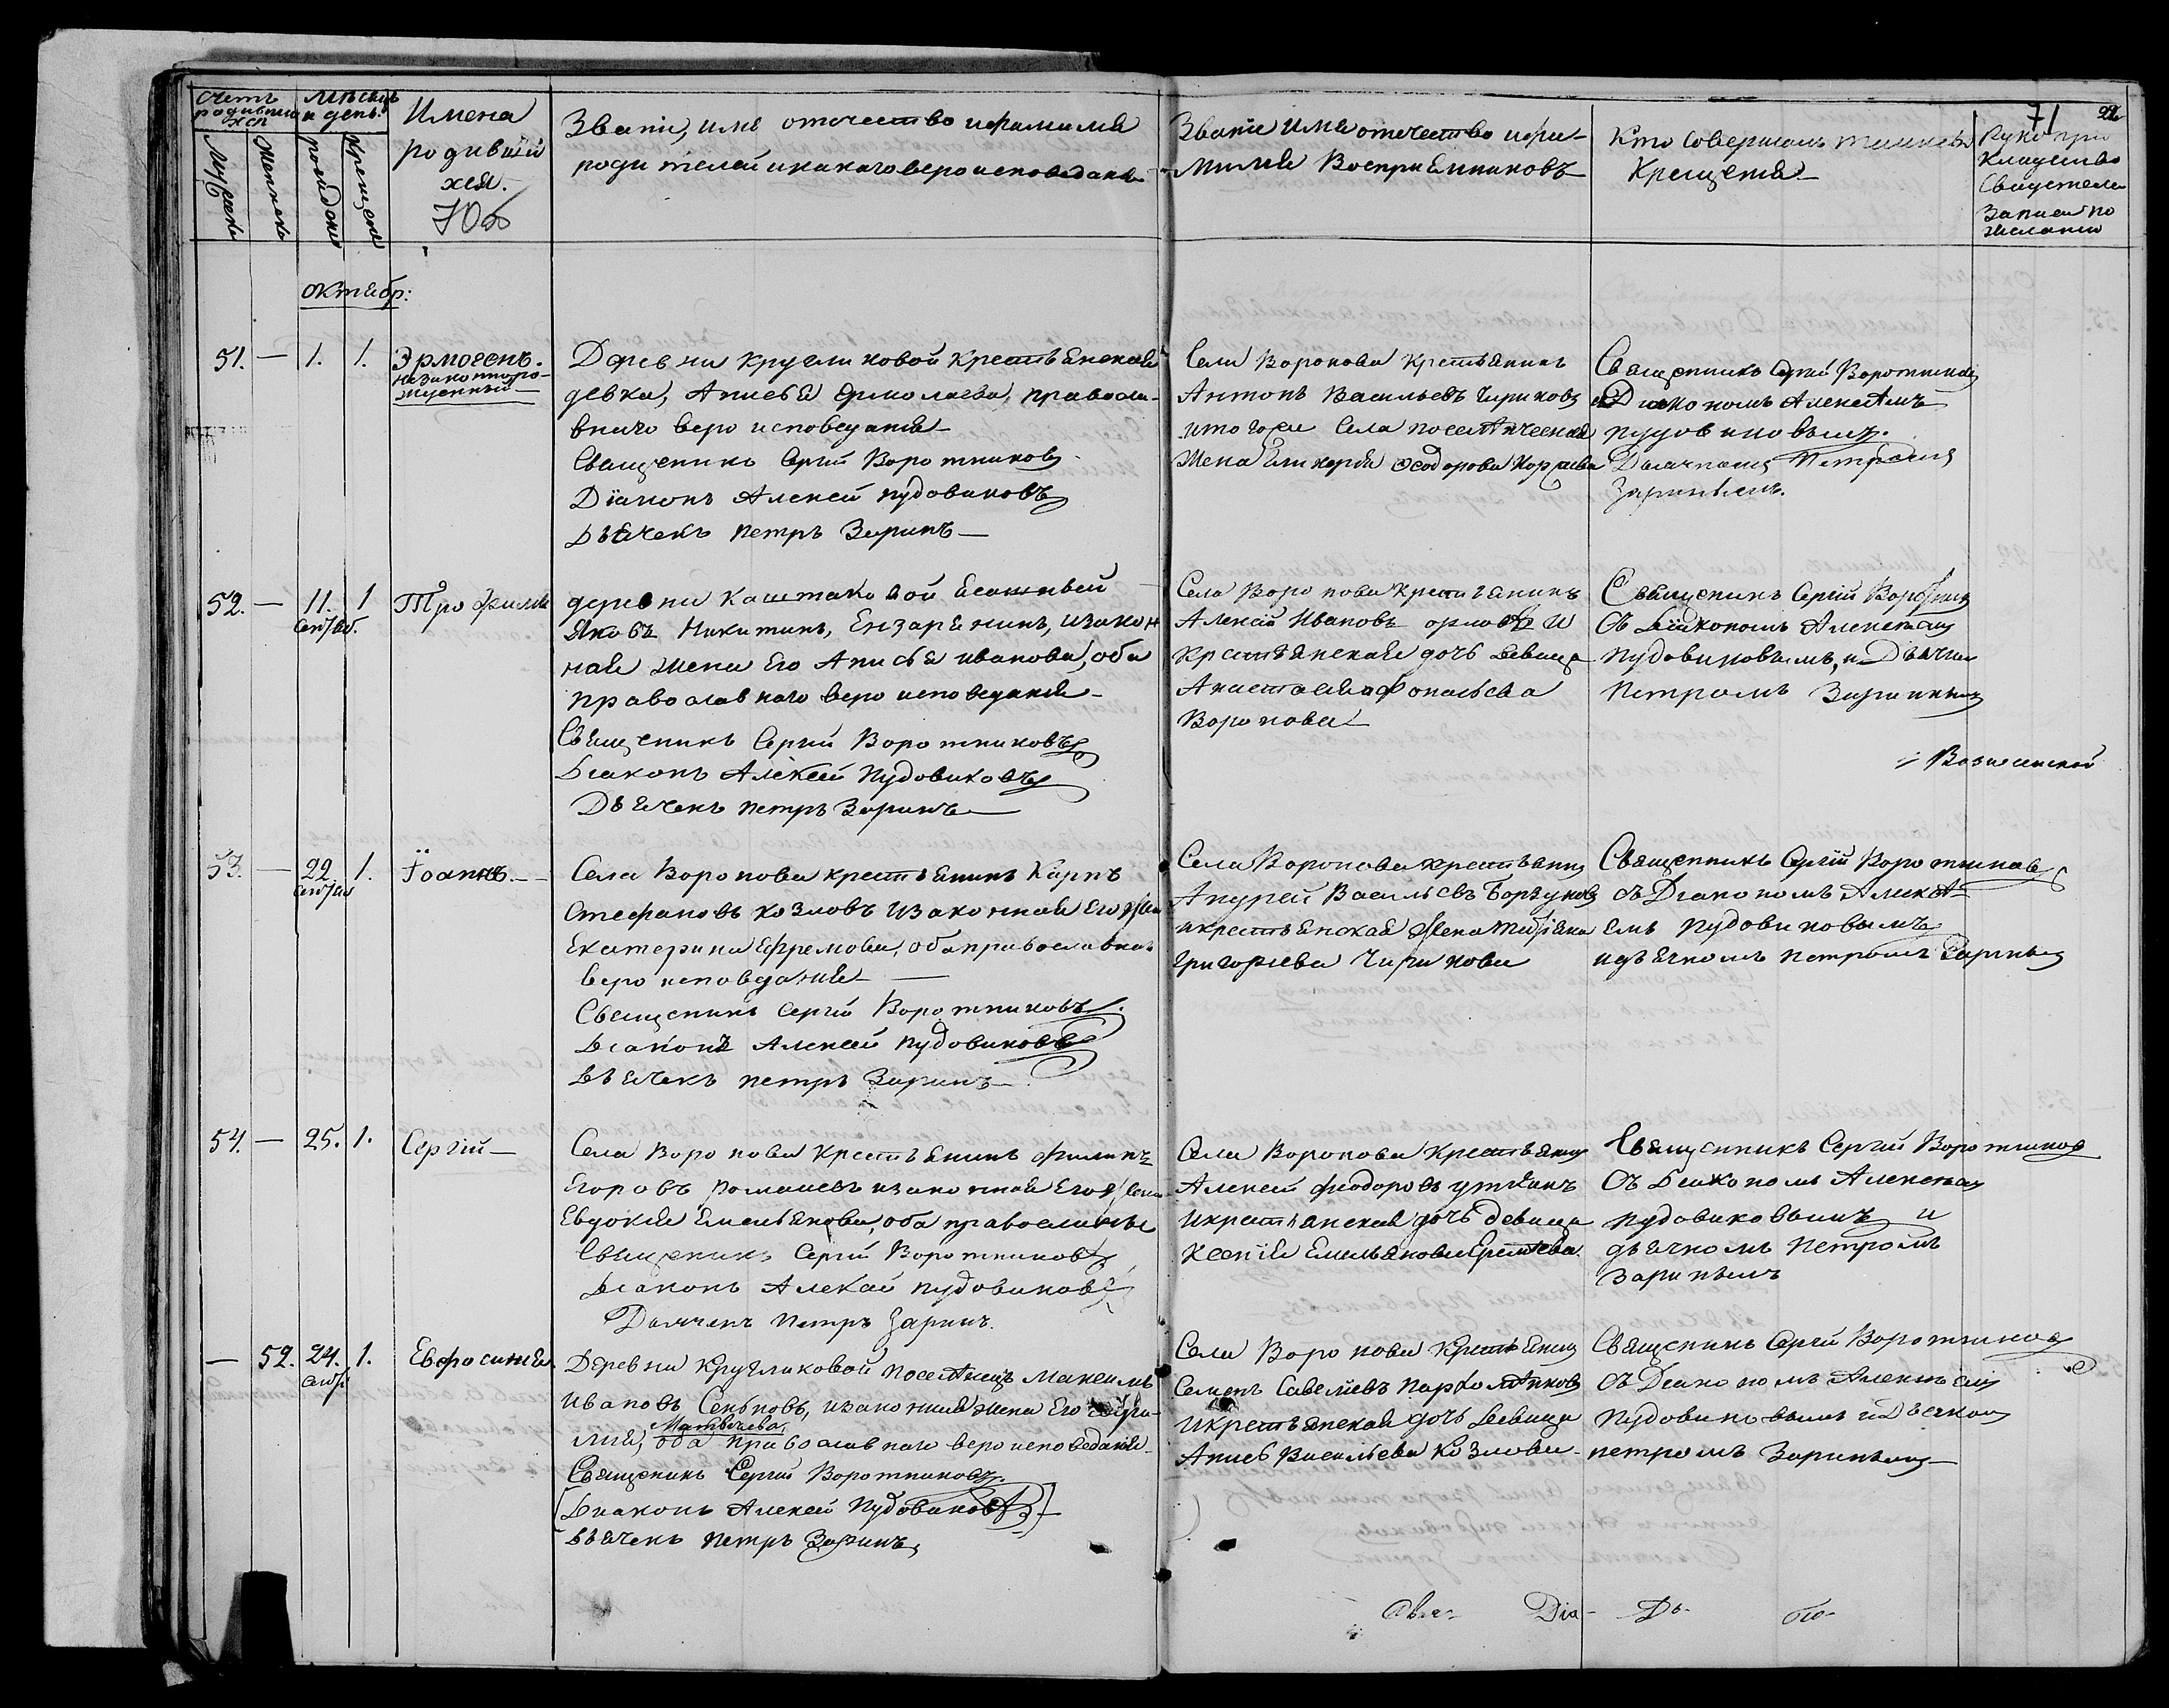 Счетъ родившихся
Мѣсяцъ и день.
Мужеска
Женска
рождения
Крещения
Имена родивший хся.
70об
Звание, имя отечество и фамилия
родителей и какого вероисповедания
Звание имя отечество и фа-
милия Восприемниковъ
Кто совершалъ таинство
Крещения
71
Рукопри
кладство
Свидетелей
Записи по
желанию
октябр:
51. — 1. 1. Эрмогенъ.
незаконноро-
жденный
Деревни Кругликовой Крестьянская
девка, Анисья Ермолаева, православ-
внаго вероисповедания
Священникъ Сергий Воротниковъ
Діаконъ Алексей Пудовиковъ
Дьячекъ Петръ Заринъ
Села Воронова Крестьянинъ
Антонъ Васильевъ Чириковъ
и того же Села поселенческая
жена Гликерия Феодорова
Священникъ Сергий Воротников
Диакономъ Алексеемъ
Пудовиковымъ.
Дьячкомъ Петромъ
Зариным.
52. — 11. 1 Трофимъ
сентяб.
деревни Каштаковой
Яковъ Никитинъ, Ензарекинъ, и закон
ная жена Его Анисья Иванова, оба
православнаго вероисповедания
Священикъ Сергий Воротниковъ
Диаконъ Алексей Пудовиковъ
Дьячекъ Петръ Заринъ
Села Воронова Крестьянинъ
Алексей Ивановъ орловъ и
крестьянская дочь девица
Анастасия Фокасьева
Воронова
Священикъ Сергий
съ Диакономъ Алексеем
Пудовиковымъ, и Дьячком
Петромъ Зариным
Вознесенской
53. — 22 1. Іоаннъ.
Села Воронова крестьянинъ Карпъ
Стефановъ Козловъ и законная Его жена
Екатерина Ефремова, оба православнаго
вероисповедания
Священикъ Сергий Воротниковъ.
Диаконъ Алексей Пудовиковъ
Дьячекъ Петръ Заринъ
Села Воронова крестьянин
Андрей Васильевъ Борзунов
и крестьянская жена Татияна
Григорьева Чирикова
Священникъ Сергій Воротников
съ Диакономъ Алексе-
емъ Пудовиковымъ
и дьячкомъ Петромъ Зариным
54. — 25. 1. Сергій
Села Воронова Крестьянинъ Филипъ
Егоровъ Романевъ и законная Его жена
Евдокия Емельянова, оба православные
Священикъ Сергій Воротниковъ
Диаконъ Алексей Пудовиковъ
Дьячекъ Петръ Заринъ.
Села Воронова Крестьянин
Алексей Феодоровъ утянъ
и крестьянская дочь девица
Ксенія Емельянова Еремеева.
Священникъ Сергий Воротников
Съ Диакономъ Алексеем
Пудовиковымъ и
дьячкомъ Петромъ
Заринымъ
— 52. 24. 1. Евфросиния.
Деревни Кругликовой поселенецъ Максимъ
Ивановъ Сеньковъ, и законная жена Его
Матвѣева,
оба православнаго вероисповедания
Священикъ Сергий Воротниковъ.
Диаконъ Алексей Пудовиковъ
Дьячекъ Петръ Заринъ,
Села Воронова Крестьянин
Семенъ Савелиевъ
и крестьянская дочь девица
Анись Васильева Козлова
Священикъ Сергій Воротников
съ Диакономъ Алексеем
Пудовиковымъ и Дьячком
Петромъ Зариным
Свя- Dia- Дь-